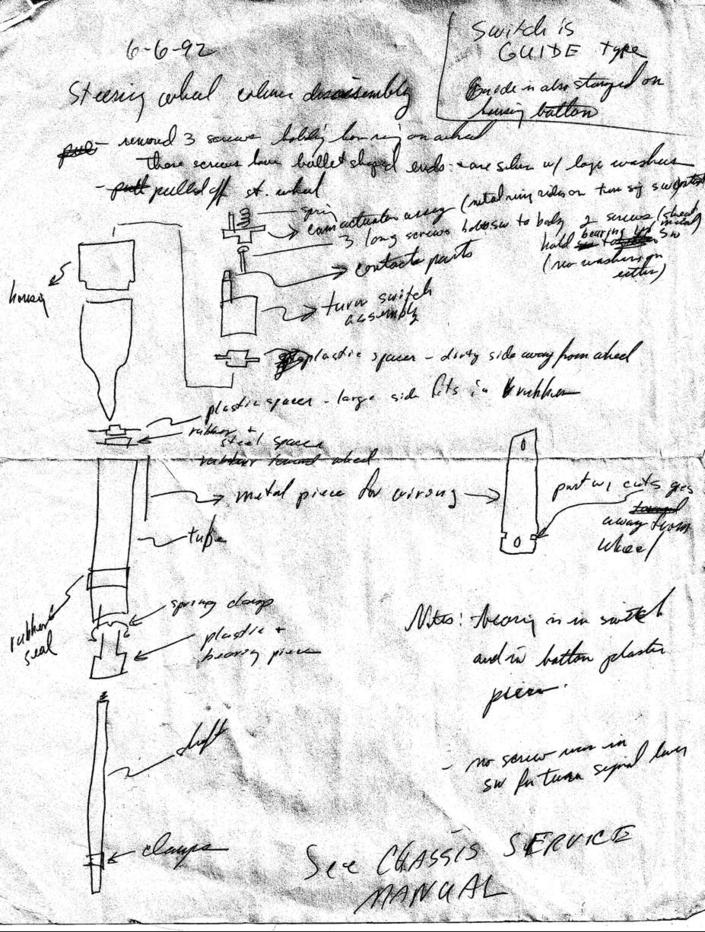 6-6-92
Switch is
GUIDE type
Guide is also stamped on
housing button
Steering wheel column disassembly
- removed 3 screws holding horn ring on wheel
those screws have bullet shaped ends - are silver w/ large washers
- pulled off st. wheel
spring
cam actuator assy (metal ring rides on turn sig sw
3 long screws hold sw to body
2 screws (
hold bearing
(no washers on
either)
contacts parts
housing
turn switch
assembly
plastic spacer - dirty side away from wheel
plastic spacer - large side fits in rubber
rubber +
steel spacer
rubber toward wheel
metal piece for wiring
part w/ cuts goes
toward
away from
wheel
tube
rubber
seal
spring clamp
plastic +
bearing piece
Notes: - bearing is in switch
and in bottom plastic
piece.
shaft
- no screw was in
sw for turn signal lever
clamps
See CHASSIS SERVICE
MANUAL